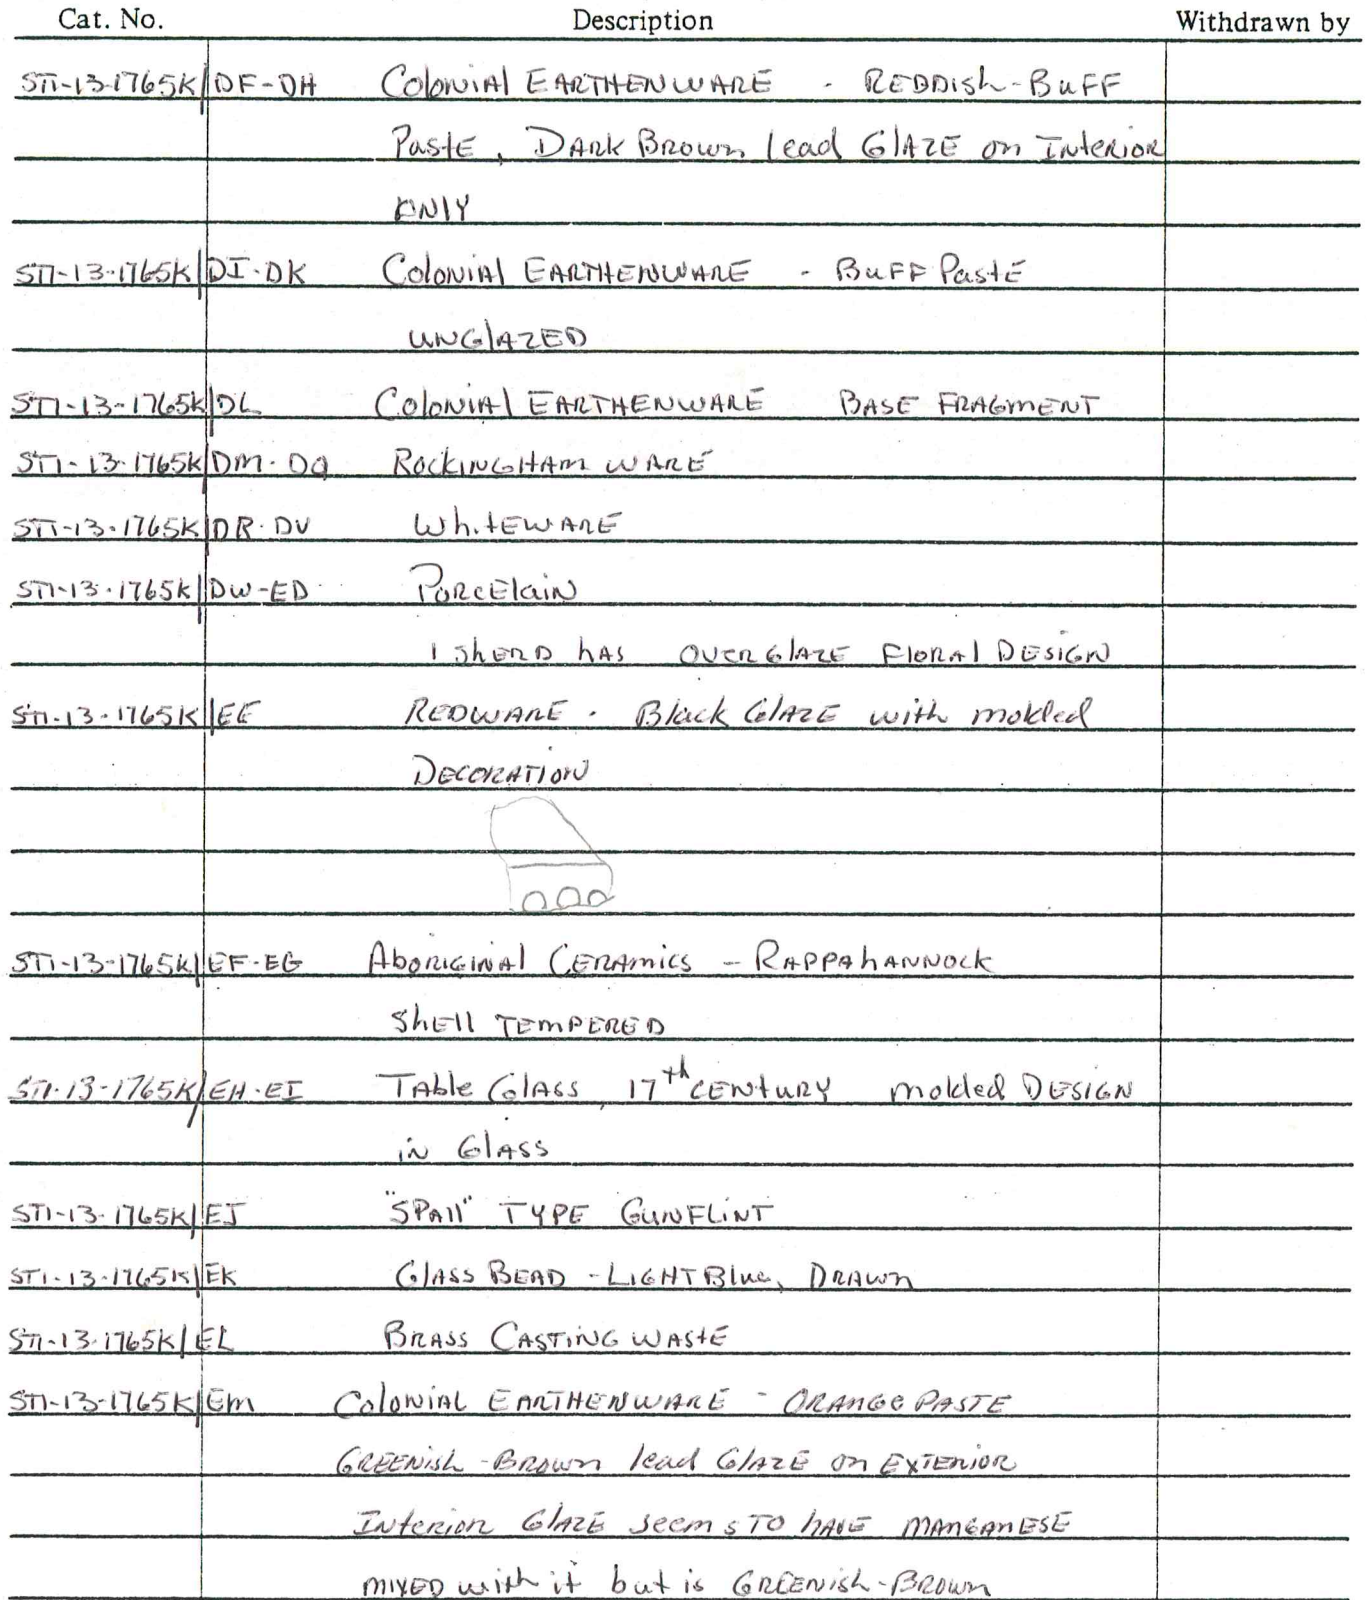 Cat. No. Description Withdrawn by
ST1-13-1765K/DF-DH Colonial EARTHENWARE - REDDISh-BUFF
PastE, DARK BROWN lead GlAZE on INtERIOR
ONlY
ST1-13-1765K/DI-DK Colonial EARTHENWARE - BUFF PastE
UNGlAZED
ST1-13-1765K/DL Colonial EARTHENWARE BASE FRAGMENT
ST1-13-1765K/DM-DQ ROCKINGHAM WARE
ST1-13-1765K/DR-DV WhitEWARE
ST1-13-1765K/DW-ED PORCElAiN
1 ShERD hAS OVERGlAZE FlORAl DESIGN
ST1-13-1765K/EE REDWARE - Black GlAZE with molded
DECORATION
ST1-13-1765K/EF-EG AbORIGINAl CERAMics - RAPPAhANNOCK
ShEll TEMPERED
ST1-13-1765K/EH-EI TAble GlASS, 17th CENtURY molded DESIGN
iN GlASS
ST1-13-1765K/EJ "SPAll" TYPE GUNFLINT
ST1-13-1765K/EK GlASS BEAD - LIGHT Blue, DRAWN
ST1-13-1765K/EL BRASS CASTING WAStE
ST1-13-1765K/EM ColoNIAL EARTHENWARE - ORANGE PASTE
GREENISh-BROWN lead GlAZE on EXTERIOR
INterior GlAZE seems TO hAVE MANGANESE
MIXED with it but is GREENISh-BROWN